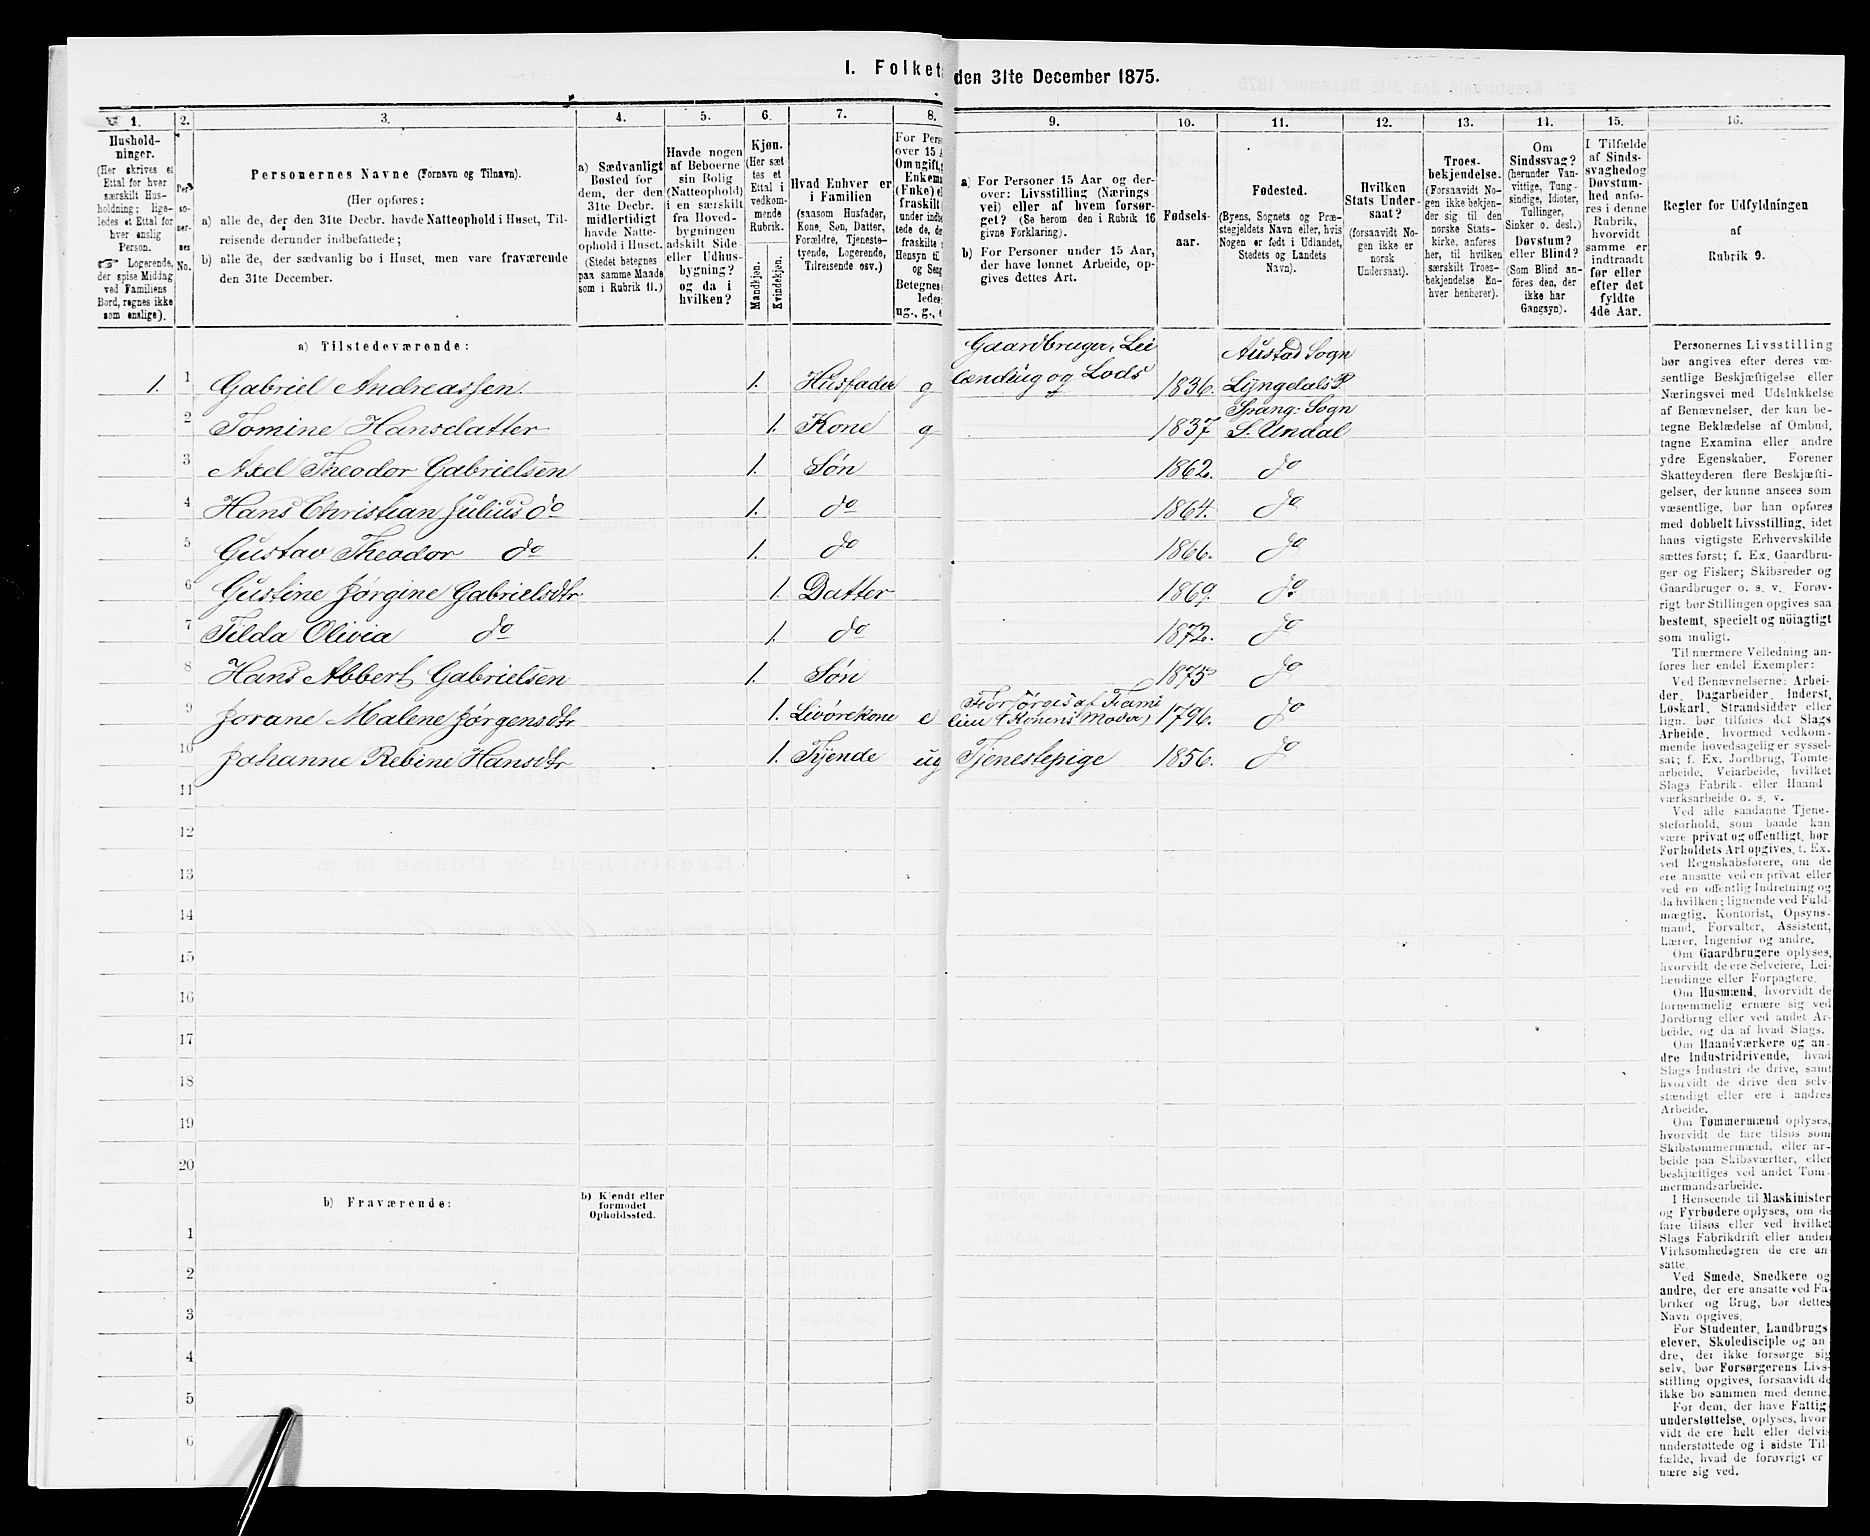 I. Folket
den 31te December 1875.
1.
2.
3.
4.
5.
6.
7.
8.
9.
10.
11.
12.
13.
14.
15.
16.
Hushold-
ninger.
(Her skrives et
Ettal for hver
særskilt Hus-
holdning; lige-
ledes et Ettal for
hver enslig
Person.
☞ Logerende,
der spise Middag
ved Familiens
Bord, regnes ikke
som enslige).
Per-
so-
ner-
nes
No.
Personernes Navne (Fornavn og Tilnavn).
(Her opføres:
a) alle de, der den 31te Decbr. havde Natteophold i Huset, Til-
reisende derunder indbefattede;
b) alle de, der sædvanlig bo i Huset, men vare fraværende
den 31te December.
a) Sædvanligt
Bosted for
dem, der den
31te Decbr.
midlertidigt
havde Natte-
ophold i Huset.
(Stedet betegnes
paa samme Maade
som i Rubrik 11.)
Havde nogen
af Beboerne
sin Bolig
(Natteophold)
i en særskilt
fra Hoved-
bygningen
adskilt Side-
eller Udhus-
bygning?
og da i
hvilken?
Kjøn.
(Her sæt-
tes et
Ettal i
vedkom-
mende
Rubrik.
Mandkjøn.
Kvindekjøn.
Hvad Enhver er
i Familien
(saasom Husfader,
Kone, Søn, Datter,
Forældre, Tjeneste-
tyende, Logerende,
Tilreisende osv.)
For Pers
over 15 A
Om ugift,
Enkema
(Fnke) e
fraskilt
under indbe
tede de, de
fraskilte
Hensyn ti
og Seng
Betegnes
ledes:
ug., g., e
a) For Personer 15 Aar og der-
over: Livsstilling (Nærings-
vei) eller af hvem forsør-
get? (Se herom den i Rubrik 16
givne Forklaring).
b) For Personer under 15 Aar,
der have lønnet Arbeide, op-
gives dettes Art.
Fødsels-
aar.
Fødested.
(Byens, Sognets og Præ-
stegjeldets Navn eller, hvis
Nogen er født i Udlandet,
Stedets og Landets
Navn).
Hvilken
Stats Under-
saat?
(forsaavidt No-
gen ikke er
norsk
Undersaat).
Troes-
bekjendelse.
(Forsaavidt No-
gen ikke bekjen-
der sig til den
norske Stats-
kirke, anføres
her, til hvilken
særskilt Troes-
bekjendelse En-
hver henhører).
Om
Sindssvag?
(herunder Van-
vittige, Tung-
sindige, Idioter,
Tullinger,
Sinker o. desl.)
Døvstum?
eller Blind?
(Som Blind an-
føres den, der
ikke har
Gangsyn).
I Tilfælde
af Sinds-
svaghed og
Døvstum-
hed anfø-
res i denne
Rubrik,
hvorvidt
samme er
indtraadt
før eller
efter det
fyldte
4de Aar.
Regler for Udfyldningen
af
Rubrik 9.
a) Tilstedeværende:
1. 1 Gabriel Andreassen. 1. Husfader g Gaardbruger, Lei
lænding og Lods 1836. Austad Sogn
Lyngdals P
2 Tomine Hansdatter 1. Kone g 1837 Spang: Sogn
S. Undal
3 Axel Theodor Gabrielsen 1. Søn 1862. do
4 Hans Christian Julius do 1. do 1864. do
5 Gustav Theodor do 1. do 1866. do
6 Gustine Jørgine Gabrielsdtr 1. Datter 1869. do
7 Tilda Olivia do 1. do 1872. do
8 Hans Abbert Gabrielsen 1. Søn 1875 do
9 Jorane Malene Jørgensdtr 1. Livørekone e Forsørges af Fami
lien (Konens Moder) 1796. do
10 Johanne Rebine Hansdtr 1. Tyende ug Tjenestepige 1856. do
11
12
13
14
15
16
17
18
19
20
b) Fraværende:
b) Kjendt eller
formodet
Opholdssted.
1
2
3
4
5
6
Personernes Livsstilling
bør angives efter deres væ-
sentlige Beskjæftigelse eller
Næringsvei med Udslukkelse
af Benævnelser, der kun be-
tegne Beklædelse af Ombud,
tagne Examina eller andre
ydre Egenskaber. Forener
Skatteyderen flere Beskjæfti-
gelser, der kunne ansees som
væsentlige, bør han opføres
med dobbelt Livsstilling, idet
hans vigtigste Erhvervskilde
sættes først; f. Ex. Gaardbru-
ger og Fisker; Skibsreder og
Gaardbruger o. s. v. Forøv-
rigt bør Stillingen opgives saa
bestemt, specielt og nøiagtigt
som muligt.
Til nærmere Veiledning an-
føres her endel Exempler:
Ved Benævnelserne: Arbei-
der, Dagarbeider, Inderst,
Løskarl, Strandsidder eller
lign. bør tilføies det Slags
Arbeide, hvormed vedkom-
mende hovedsagelig er syssel-
sat; f. Ex. Jordbrug, Tomte-
arbeide, Veiarbeide, hvilket
Slags Fabrik- eller Haand-
værksarbeide o. s. v.
Ved alle saadanne Tjene-
steforhold, som baade kan
være privat og offentligt, bør
Forholdets Art opgives, t. Ex.
ved Regnskabsførere, om de
ere ansatte ved en privat eller
ved en offentlig Indretning og
da hvilken; lignende ved Fuld-
mægtig, Kontorist, Opsyns-
mand, Forvalter, Assistent,
Lærer, Ingeniør og andre.
Om Gaardbrugere oplyses,
hvorvidt de ere Selveiere, Lei-
lændinge eller Forpagtere.
Om Husmænd, hvorvidt de
fornemmelig ernære sig ved
Jordbrug eller ved andet Ar-
beide, og da af hvad Slags.
Om Haandværkere og an-
dre Industridrivende, hvad
Slags Industri de drive, samt
hvorvidt de drive den selv-
stændigt eller ere i andres
Arbeide.
Om Tømmermænd oplyses,
hvorvidt de fare tilsøs som
Skibstømmermænd, eller ar-
beide paa Skibsværfter, eller
beskjæftiges ved andet Tøm-
mermandsarbeide.
I Henseende til Maskinister
og Fyrbødere oplyses, om de
fare tilsøs eller ved hvilket
Slags Fabrikdrift eller anden
Virksomhedsgren de ere an-
satte.
Ved Smede, Snedkere og
andre, der ere ansatte ved Fa-
briker og Brug, bør dettes
Navn opgives.
For Studenter, Landbrugs-
elever, Skoledisciple og an-
dre, der ikke forsørge sig
selv, bør Forsørgerens Livs-
stilling opgives, forsaavidt de
ikke bo sammen med denne.
For dem, der have Fattig-
understøttelse, oplyses, hvor-
vidt de ere helt eller delvis
understøttede og i sidste Til-
fælde, hvad de forøvrigt er-
nære sig ved.